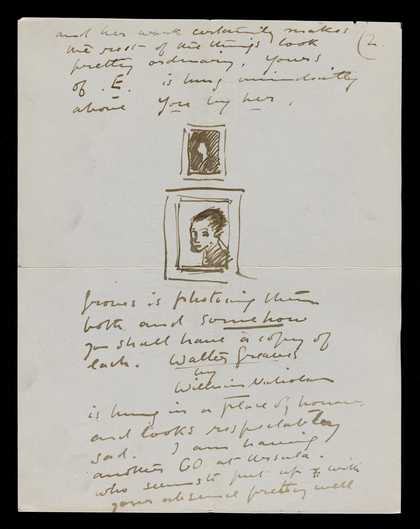 and her work certainly makes
the rest of the things look
pretty ordinary, yours
of .E. is hung immediately
above You by her.
2.
Groves is photoing them
both and somehow
you shall have a copy of
each. Walter Greaves
by
William Nicholson
is hung in a place of honour
and looks respectably
sad. I am having
another GO at Ursula.
who seems to put up with
your absence pretty well